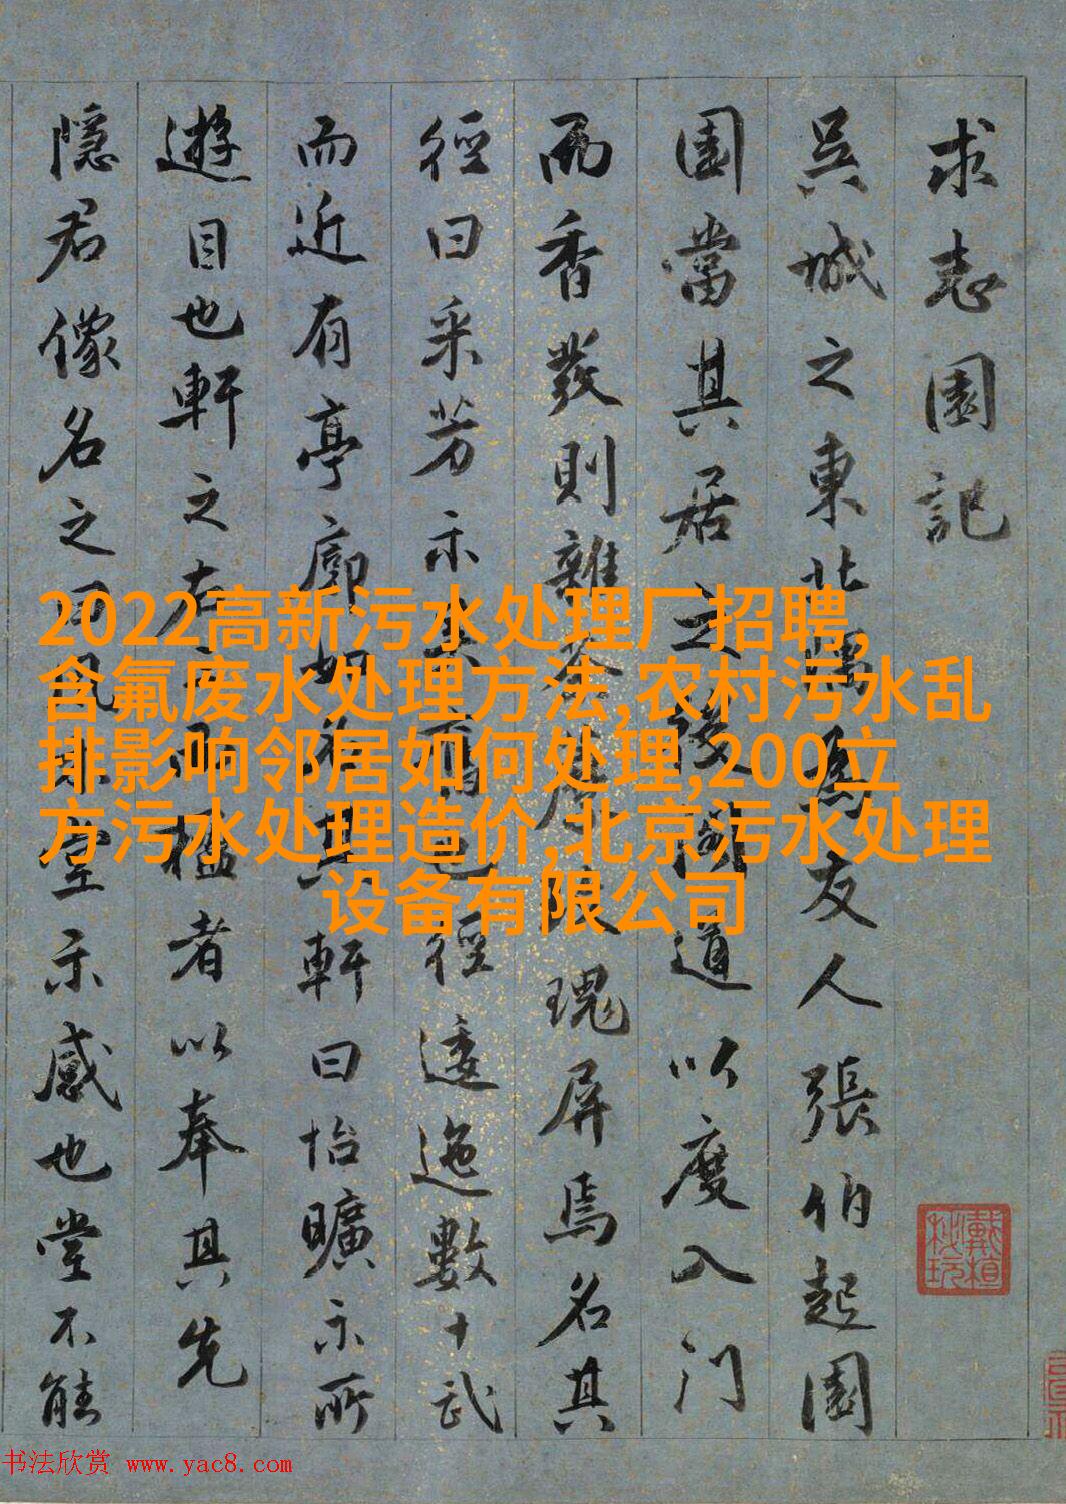 求志園記
吳城之東北隅為友人張伯起園
園當其居之後闢道以度入門
而香發則雜荼瑰屏焉名其
徑曰采芳示也徑逶迤數十武
而近有亭廊如其軒曰怡曠示所
遊目也軒之右楹者以奉其先
隱君像名之曰風木堂示感也堂不能
2022高新污水处理厂招聘,
含氟废水处理方法,农村污水乱
排影响邻居如何处理,200立
方污水处理造价,北京污水处理
设备有限公司
戴植秘玩
书法欣赏 www.yac8.com